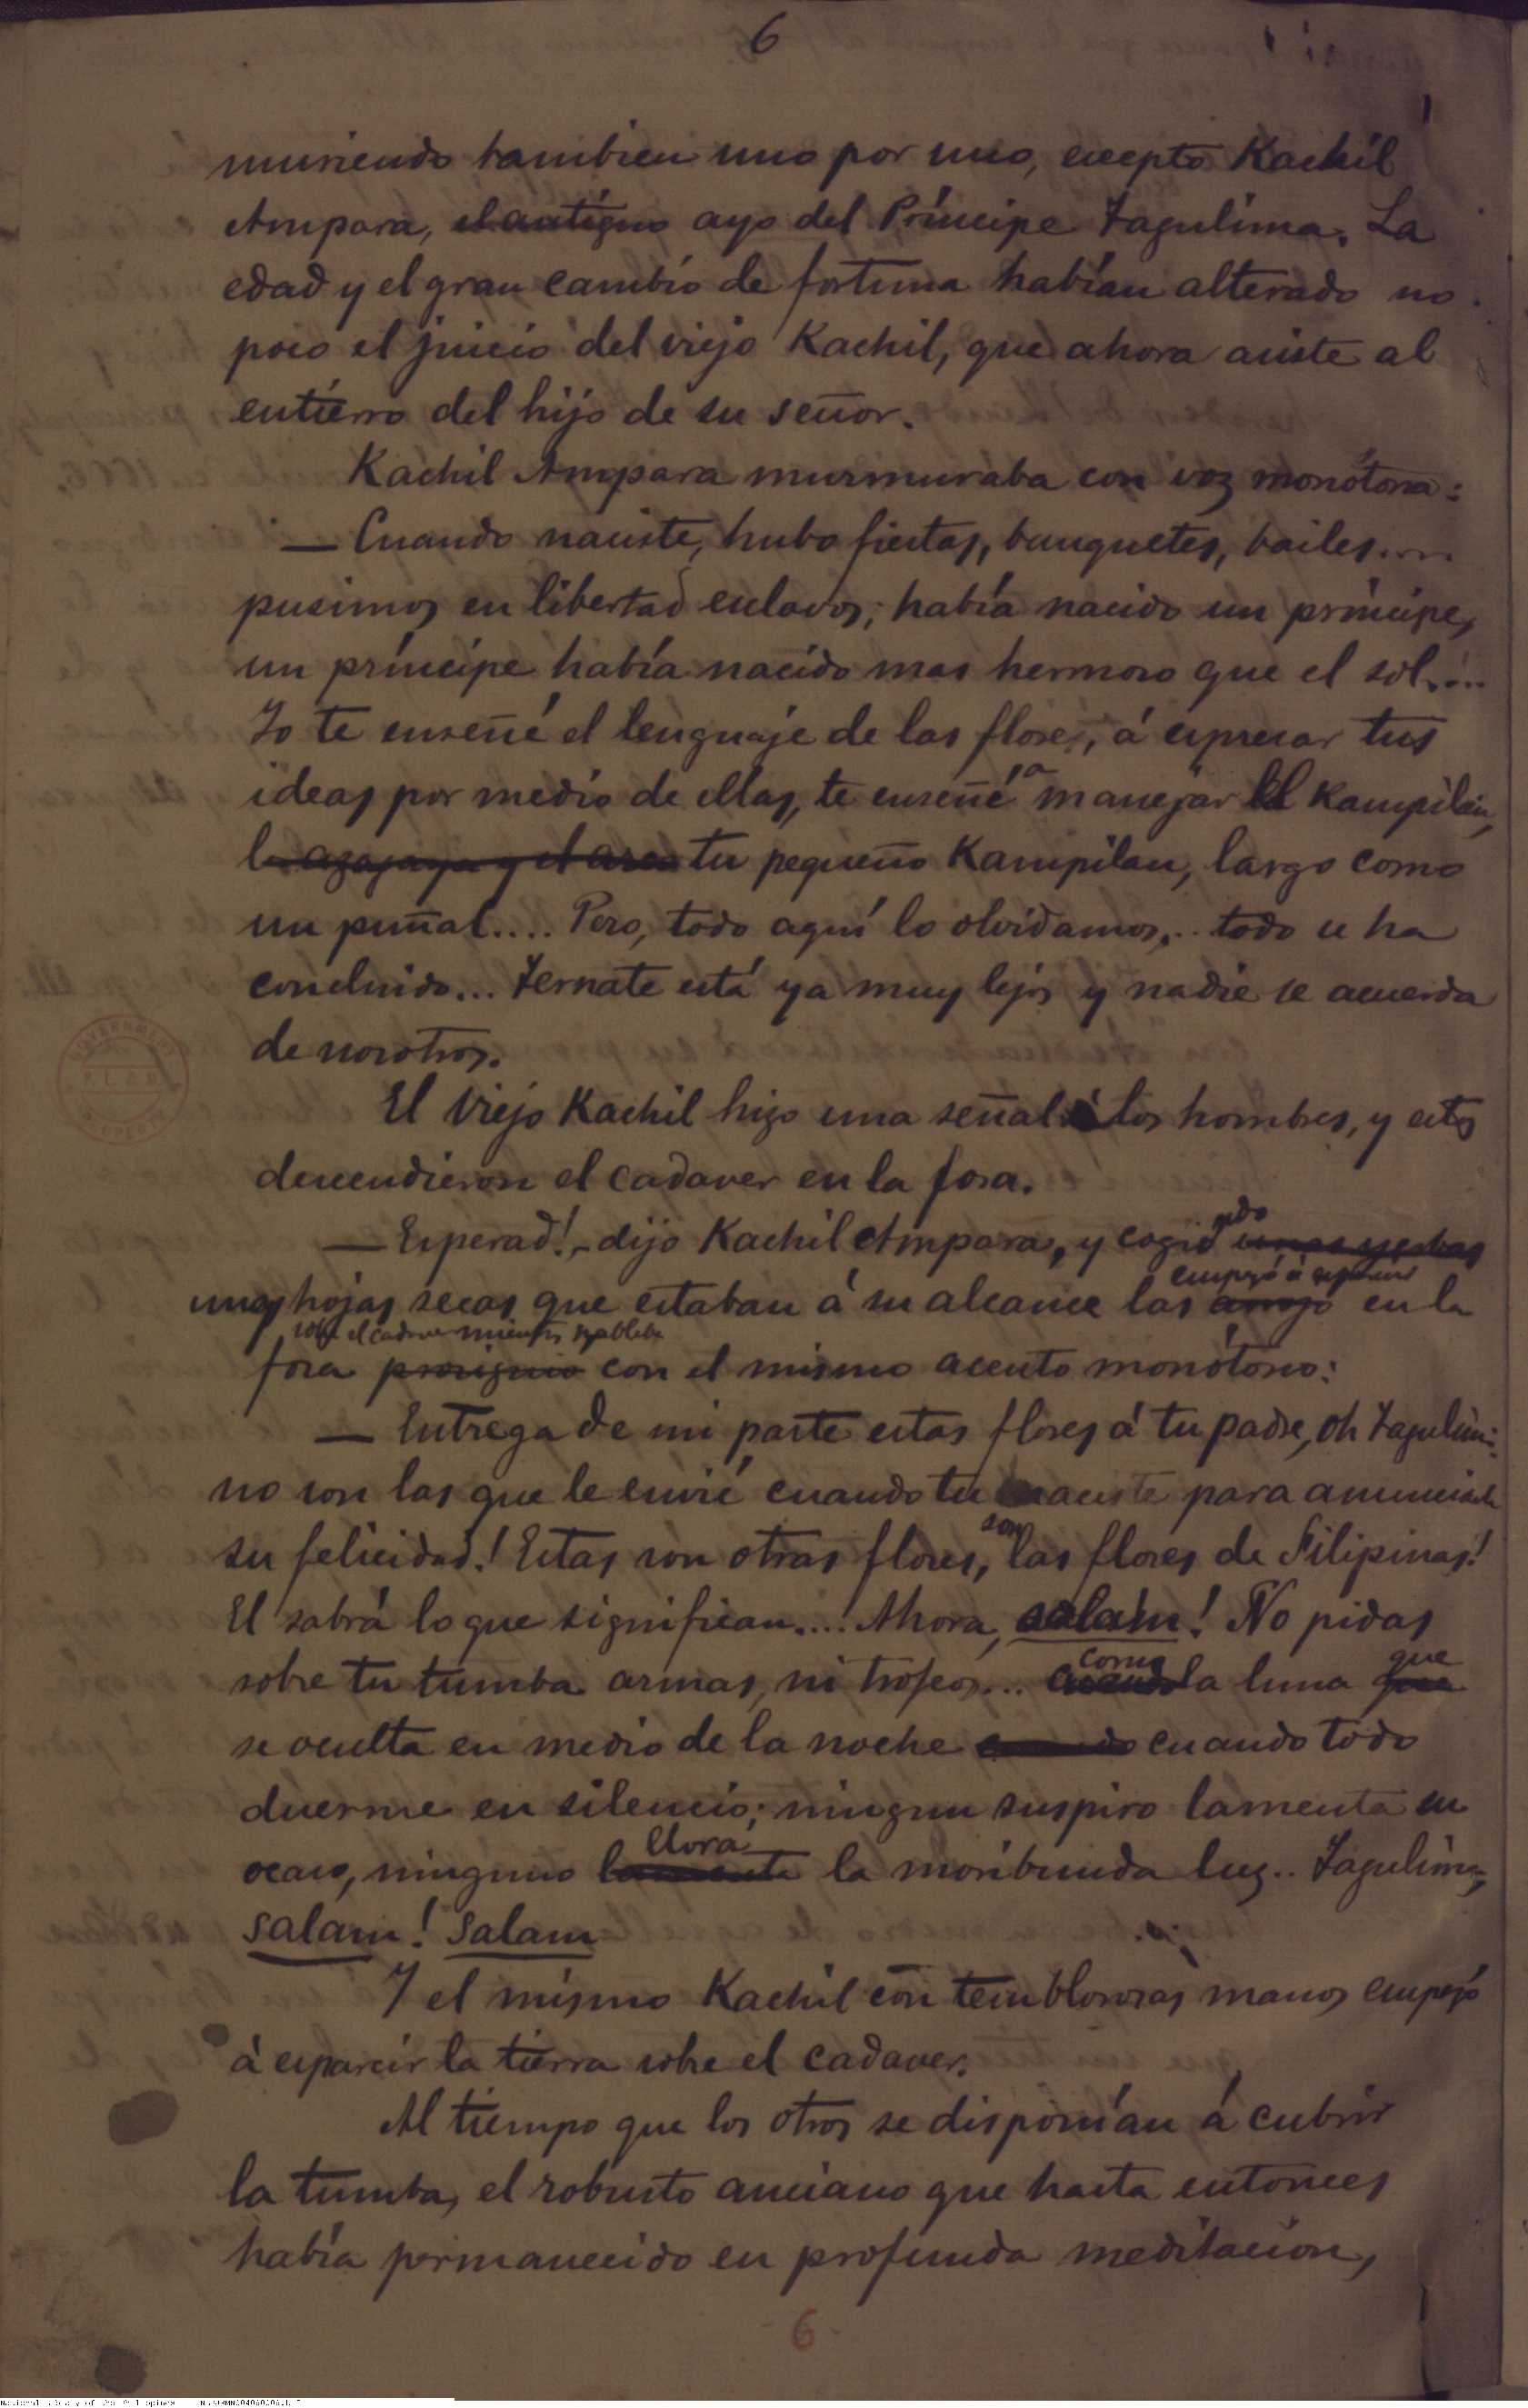 6
muriendo tambien uno por uno, excepto Kachil
Ampara, el antiguo ayo del Príncipe Tagulima. La
edad y el gran cambio de fortuna habían alterado no
poco el juicio del viejo Kachil, que ahora asiste al
entierro del hijo de su señor.
Kachil Ampara murmuraba con voz monótona:
— Cuando naciste, hubo fiestas, banquetes, bailes....
pusimos en libertad esclavos; había nacido un príncipe,
un príncipe había nacido mas hermoso que el sol....
Yo te enseñé el lenguaje de las flores, á expresar tus
ideas por medio de ellas, te enseñé a manejar el Kampilan,
la azagaya y el arco tu pequeño Kampilan, largo como
un puñal.... Pero, todo aquí lo olvidamos,.. todo se ha
concluido... Ternate está ya muy lejos y nadie se acuerda
de nosotros.
El viejo Kachil hizo una señal á los hombres, y estos
descendieron el cadaver en la fosa.
— Esperad!,- dijo Kachil Ampara, y cogió unas yerbas
unas hojas secas que estaban á su alcance las empezó á esparcir arrojó en la
sobre el cadaver mientras hablaba
fosa prosiguió con el mismo acento monótono:
— Entrega de mi parte estas flores á tu padre, oh Tagulima:
no son las que le envié cuando tu naciste para anunciarle
su felicidad! Estas son otras flores, son las flores de Filipinas!
El sabrá lo que significan.... Ahora, salam! No pidas
sobre tu tumba armas, ni trofeos... como la luna que
se oculta en medio de la noche cuando todo
duerme en silencio; ningun suspiro lamenta su
ocaso, ninguno lamenta llora la moribunda luz.. Tagulima,
salam! Salam
Y el mismo Kachil con temblorosas manos empezó
á esparcir la tierra sobre el cadaver.
Al tiempo que los otros se disponían á cubrir
la tumba, el robusto anciano que hasta entonces
había permanecido en profunda meditacion,
6